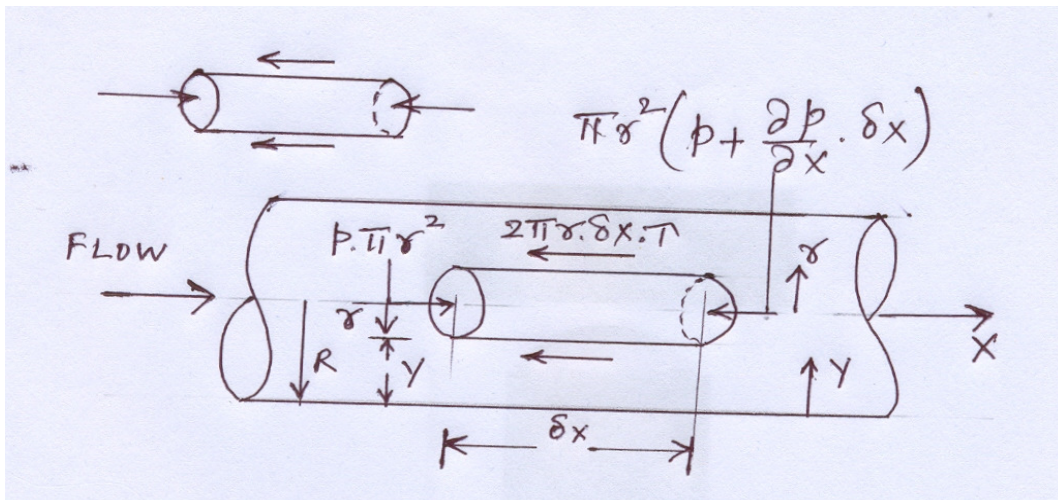 πr²(p + ∂p/∂x . δx)
FLOW
p.πr²
2πr.δx.τ
r
r
R
Y
Y
X
δx